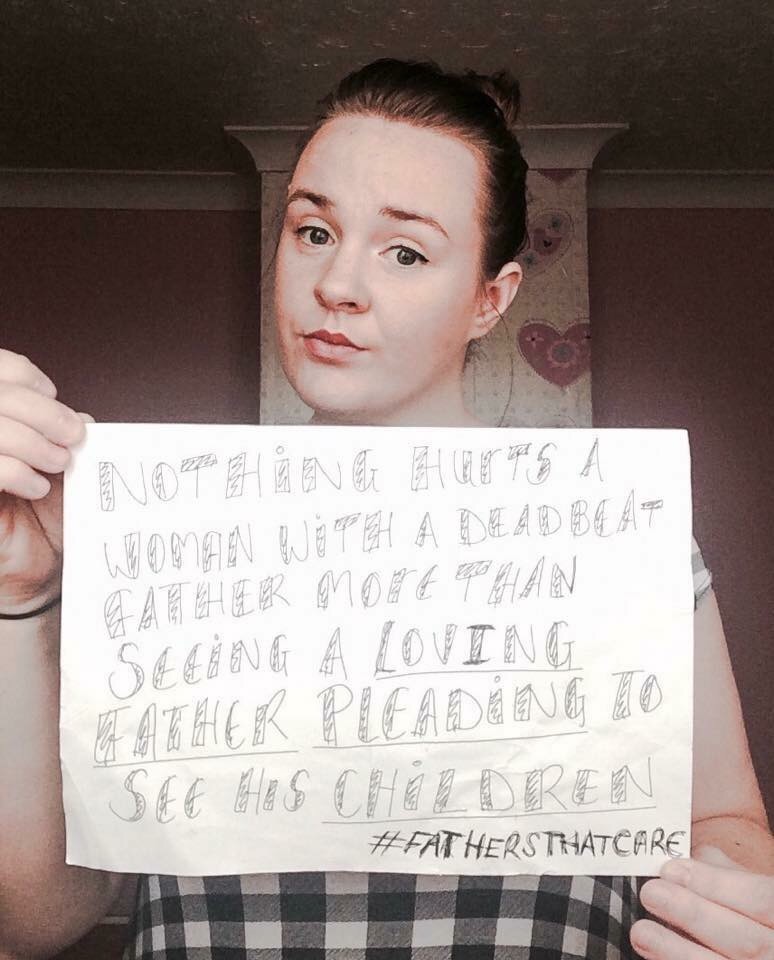 NOTHiNG HURTS A
WOMAN WiTH A DEADBEAT
FATHER MORE THAN
SEEiNG A LOVING
FATHER PLEADiNG TO
SEE HiS CHiLDREN
#FATHERSTHATCARE